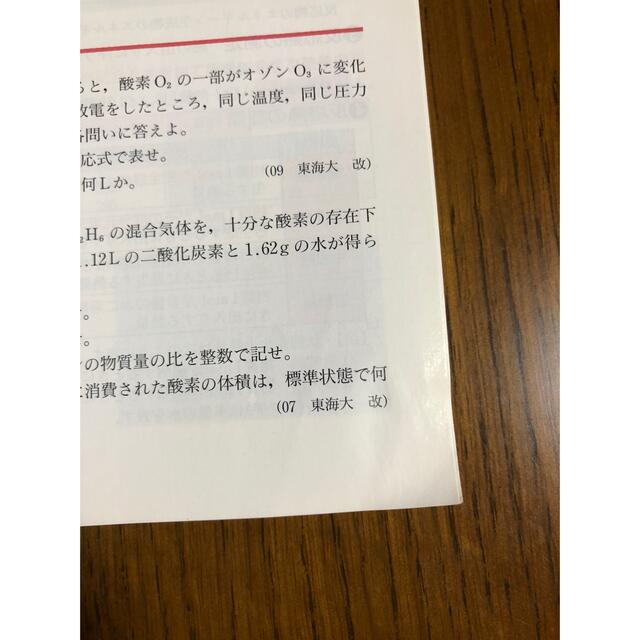 ると，酸素O₂の一部がオゾンO₃に変化
放電をしたところ，同じ温度，同じ圧力
各問いに答えよ。
応式で表せ。
何Lか。
(09 東海大 改)
₂H₆の混合気体を，十分な酸素の存在下
1.12Lの二酸化炭素と1.62gの水が得ら
。
。
の物質量の比を整数で記せ。
に消費された酸素の体積は，標準状態で何
(07 東海大 改)